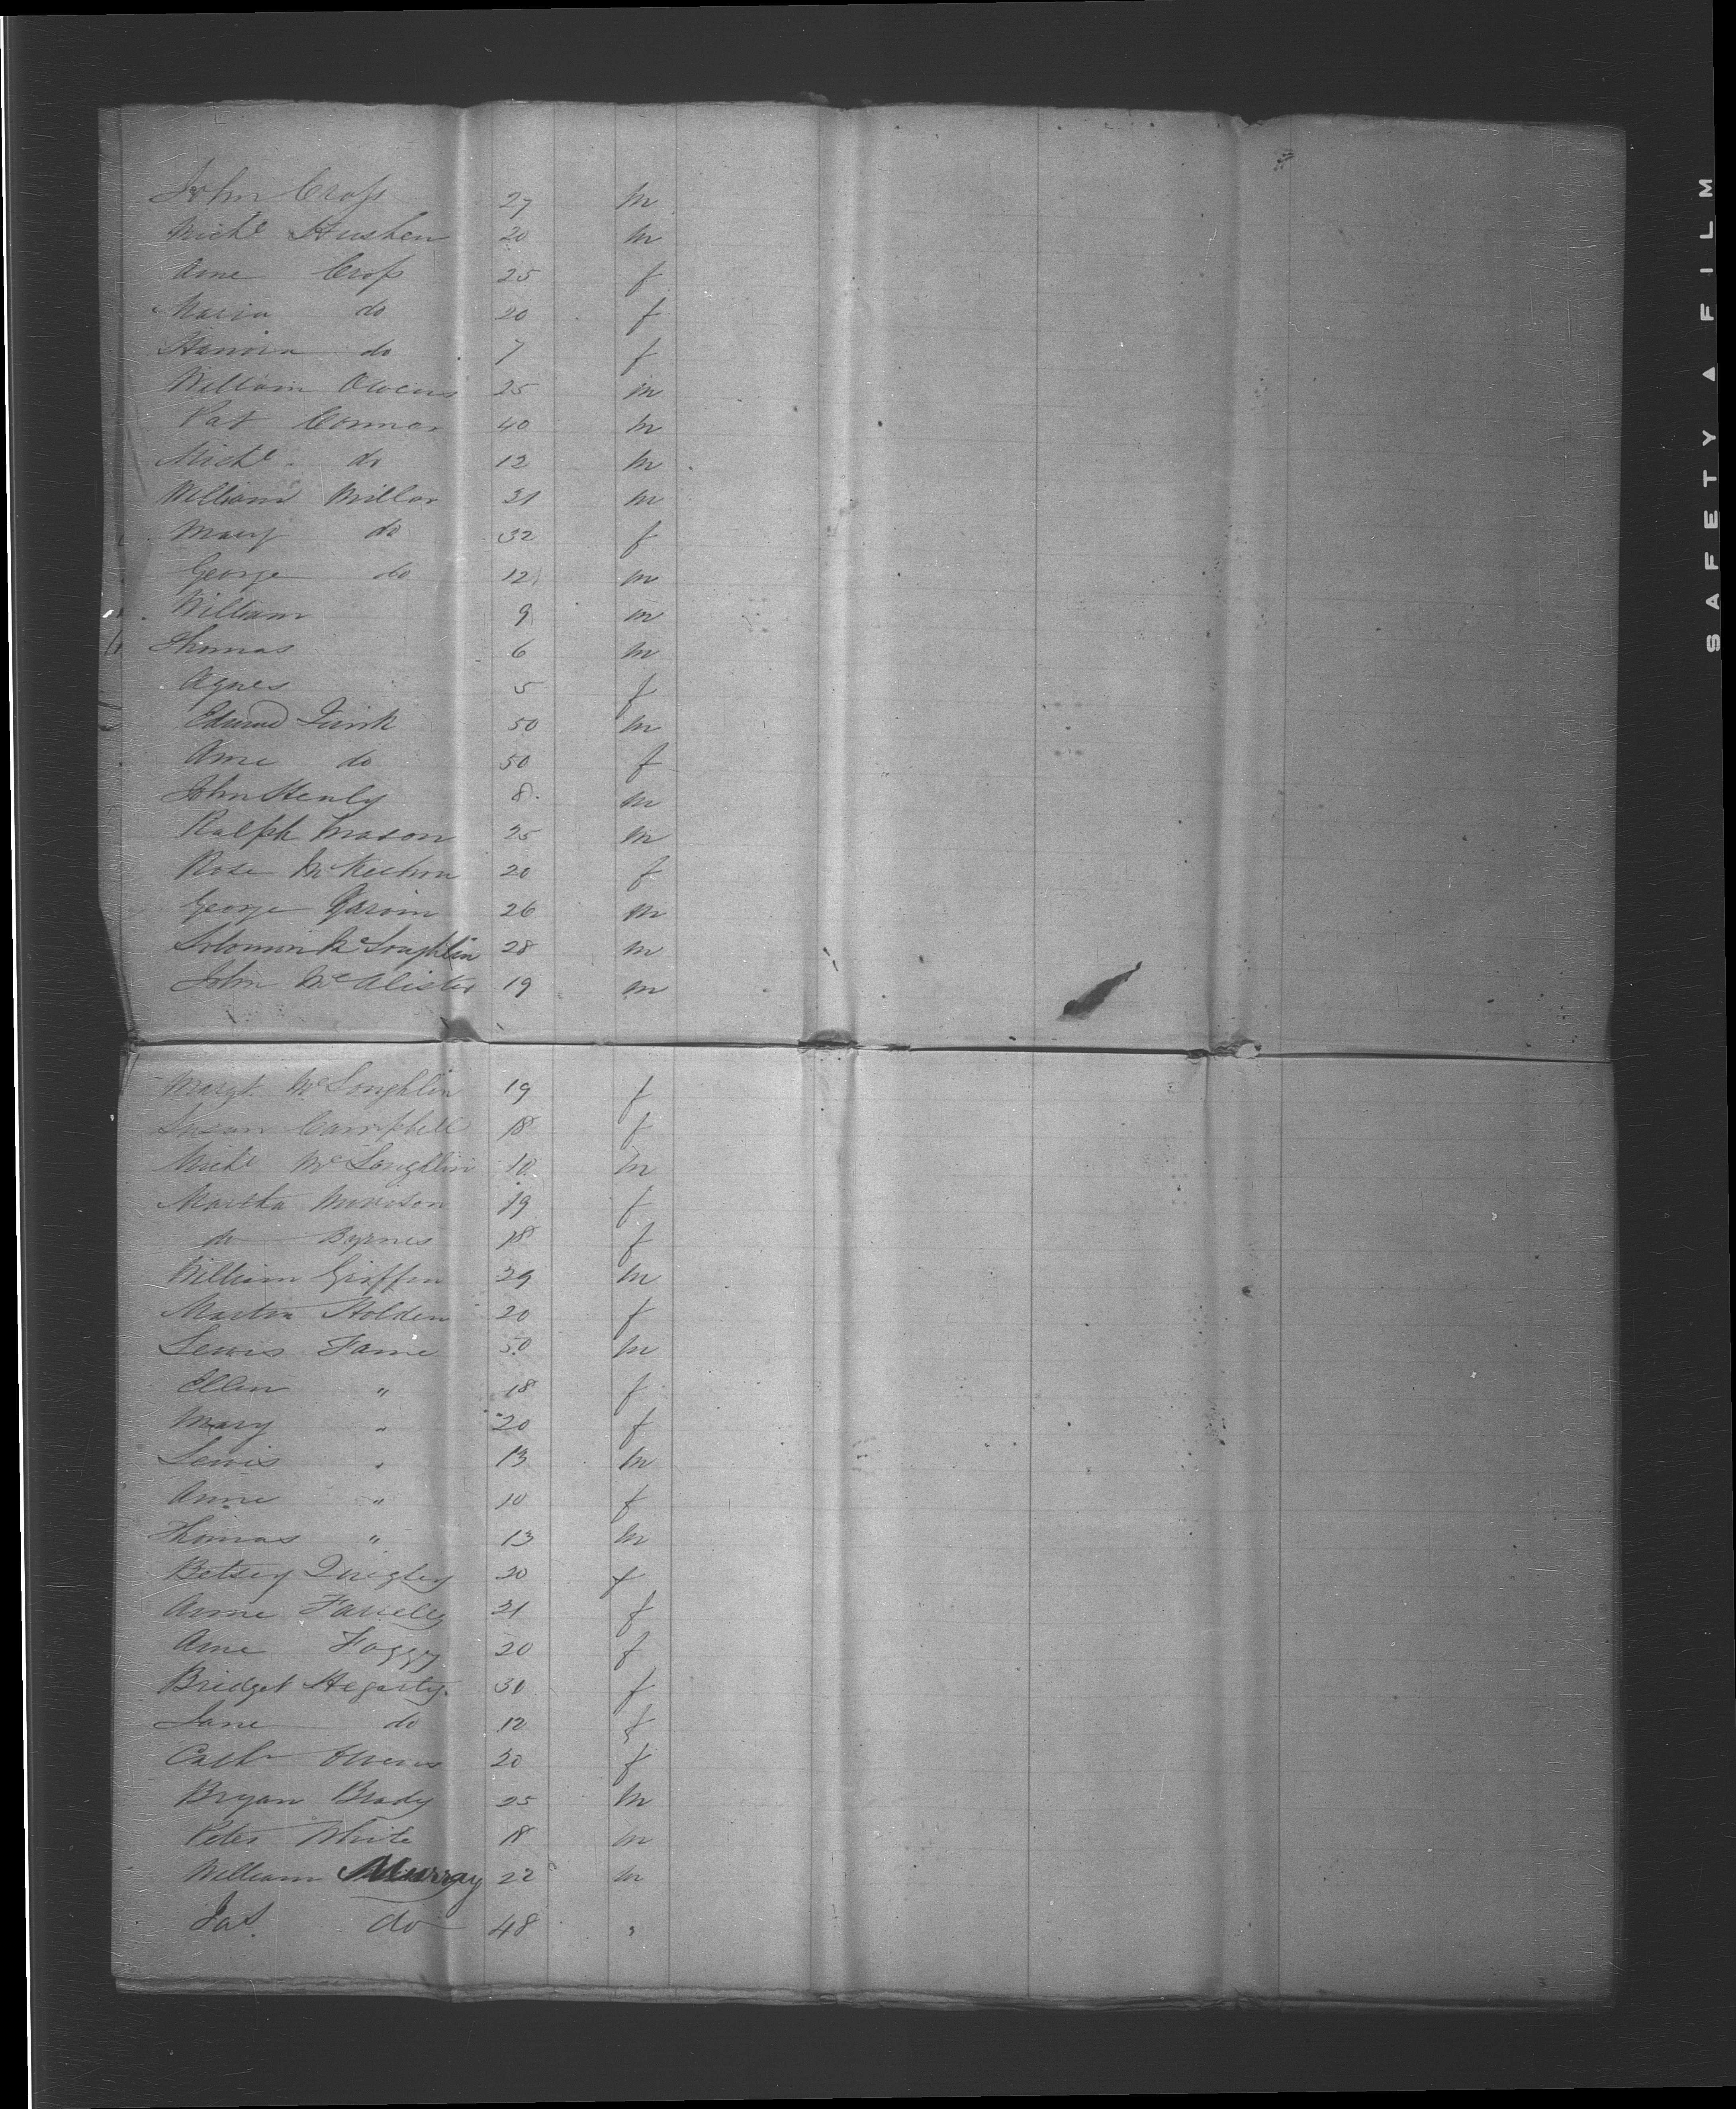 John Cross 27 m
Michl Hushen 20 m
Anne Cross 25 f
Maria do 20 f
Hanora do 7 f
William Owens 25 m
Pat Connor 40 m
Michl do 12 m
William Millar 31 m
Mary do 32 f
George do 12 m
William 9 m
Thomas 6 m
Agnes 5 f
Edward 50 m
Anne do 50 f
John Henly 8 m
Ralph Mason 25 m
Rose McKeehon 20 f
George Garvin 26 m
Solomon McLoughlin 28 m
John McAlister 19 m
Margt. McLoughlin 19 f
Susan Campbell 18 f
Michl McLoughlin 10 m
Martha Morrison 19 f
do Byrnes 18 f
William Griffin 29 m
Martha Holden 20 f
Lewis Fame 50 m
Ellen " 18 f
Mary " 20 f
Lewis " 13 m
Anne " 10 f
Thomas " 13 m
Betsey Quigley 20 f
Anne Farrelly 21 f
Anne Foggy 20 f
Bridget Hegarty 30 f
Jane do 12 f
Cath Owens 20 f
Bryan Brady 25 m
Peter White 18 m
William Murray 22 m
Jas. do 48 "
SAFETY ▲ FILM